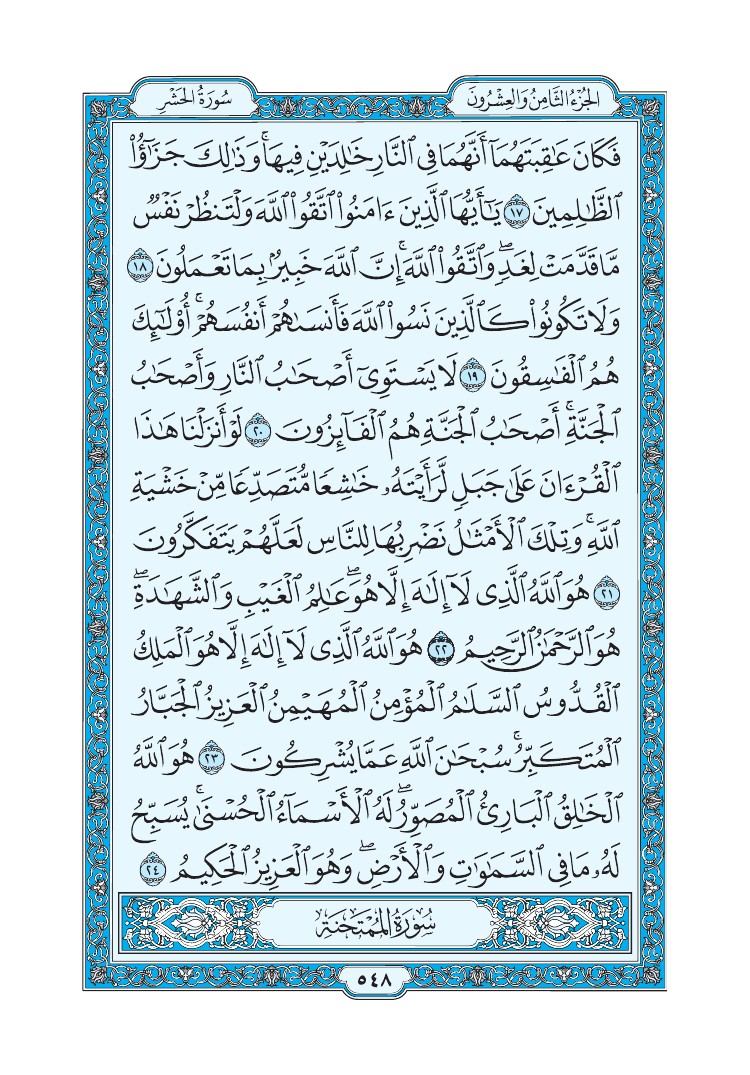 الجُزْءُ الثَّامِنُ وَالعِشْرُونَ
سُورَةُ الحَشْرِ
فَكَانَ عَٰقِبَتَهُمَآ أَنَّهُمَا فِى ٱلنَّارِ خَٰلِدَيْنِ فِيهَا ۚ وَذَٰلِكَ جَزَٰٓؤُا۟
ٱلظَّٰلِمِينَ ١٧ يَٰٓأَيُّهَا ٱلَّذِينَ ءَامَنُوا۟ ٱتَّقُوا۟ ٱللَّهَ وَلْتَنظُرْ نَفْسٌ
مَّا قَدَّمَتْ لِغَدٍ ۖ وَٱتَّقُوا۟ ٱللَّهَ ۚ إِنَّ ٱللَّهَ خَبِيرٌۢ بِمَا تَعْمَلُونَ ١٨
وَلَا تَكُونُوا۟ كَٱلَّذِينَ نَسُوا۟ ٱللَّهَ فَأَنسَىٰهُمْ أَنفُسَهُمْ ۚ أُو۟لَٰٓئِكَ
هُمُ ٱلْفَٰسِقُونَ ١٩ لَا يَسْتَوِىٓ أَصْحَٰبُ ٱلنَّارِ وَأَصْحَٰبُ
ٱلْجَنَّةِ ۚ أَصْحَٰبُ ٱلْجَنَّةِ هُمُ ٱلْفَآئِزُونَ ٢٠ لَوْ أَنزَلْنَا هَٰذَا
ٱلْقُرْءَانَ عَلَىٰ جَبَلٍ لَّرَأَيْتَهُۥ خَٰشِعًا مُّتَصَدِّعًا مِّنْ خَشْيَةِ
ٱللَّهِ ۚ وَتِلْكَ ٱلْأَمْثَٰلُ نَضْرِبُهَا لِلنَّاسِ لَعَلَّهُمْ يَتَفَكَّرُونَ
٢١ هُوَ ٱللَّهُ ٱلَّذِى لَآ إِلَٰهَ إِلَّا هُوَ ۖ عَٰلِمُ ٱلْغَيْبِ وَٱلشَّهَٰدَةِ ۖ
هُوَ ٱلرَّحْمَٰنُ ٱلرَّحِيمُ ٢٢ هُوَ ٱللَّهُ ٱلَّذِى لَآ إِلَٰهَ إِلَّا هُوَ ٱلْمَلِكُ
ٱلْقُدُّوسُ ٱلسَّلَٰمُ ٱلْمُؤْمِنُ ٱلْمُهَيْمِنُ ٱلْعَزِيزُ ٱلْجَبَّارُ
ٱلْمُتَكَبِّرُ ۚ سُبْحَٰنَ ٱللَّهِ عَمَّا يُشْرِكُونَ ٢٣ هُوَ ٱللَّهُ
ٱلْخَٰلِقُ ٱلْبَارِئُ ٱلْمُصَوِّرُ ۖ لَهُ ٱلْأَسْمَآءُ ٱلْحُسْنَىٰ ۚ يُسَبِّحُ
لَهُۥ مَا فِى ٱلسَّمَٰوَٰتِ وَٱلْأَرْضِ ۖ وَهُوَ ٱلْعَزِيزُ ٱلْحَكِيمُ ٢٤
سُورَةُ المُمْتَحنَةِ
٥٤٨